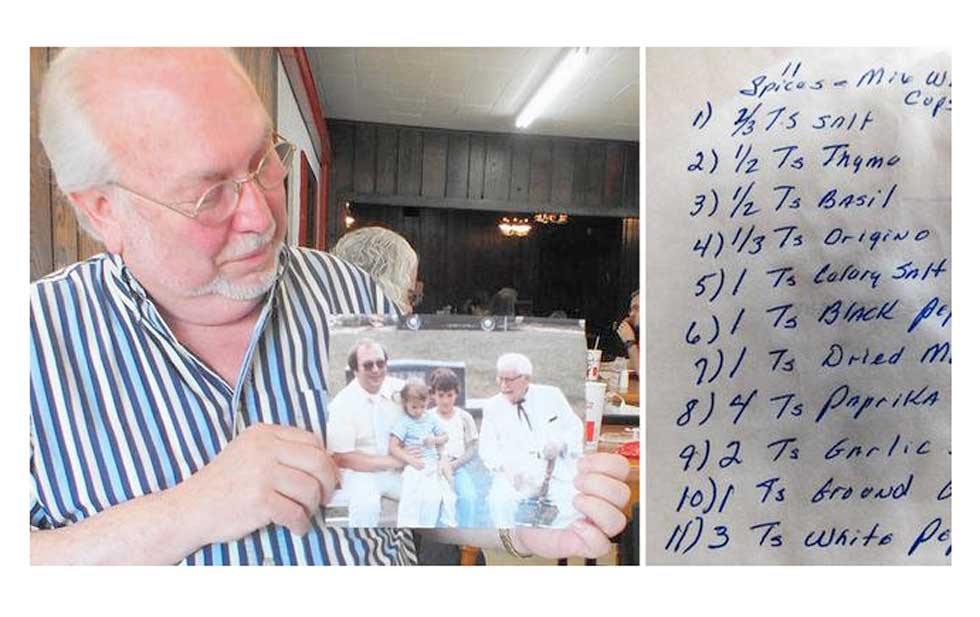 11
Spices = Mix W.
Cups
1) 2/3 Ts Salt
2) 1/2 Ts Thyme
3) 1/2 Ts Basil
4) 1/3 Ts Origino
5) 1 Ts Celary Salt
6) 1 Ts Black Pep
7) 1 Ts Dried M
8) 4 Ts Paprika
9) 2 Ts Garlic
10) 1 Ts Ground G
11) 3 Ts White Pep